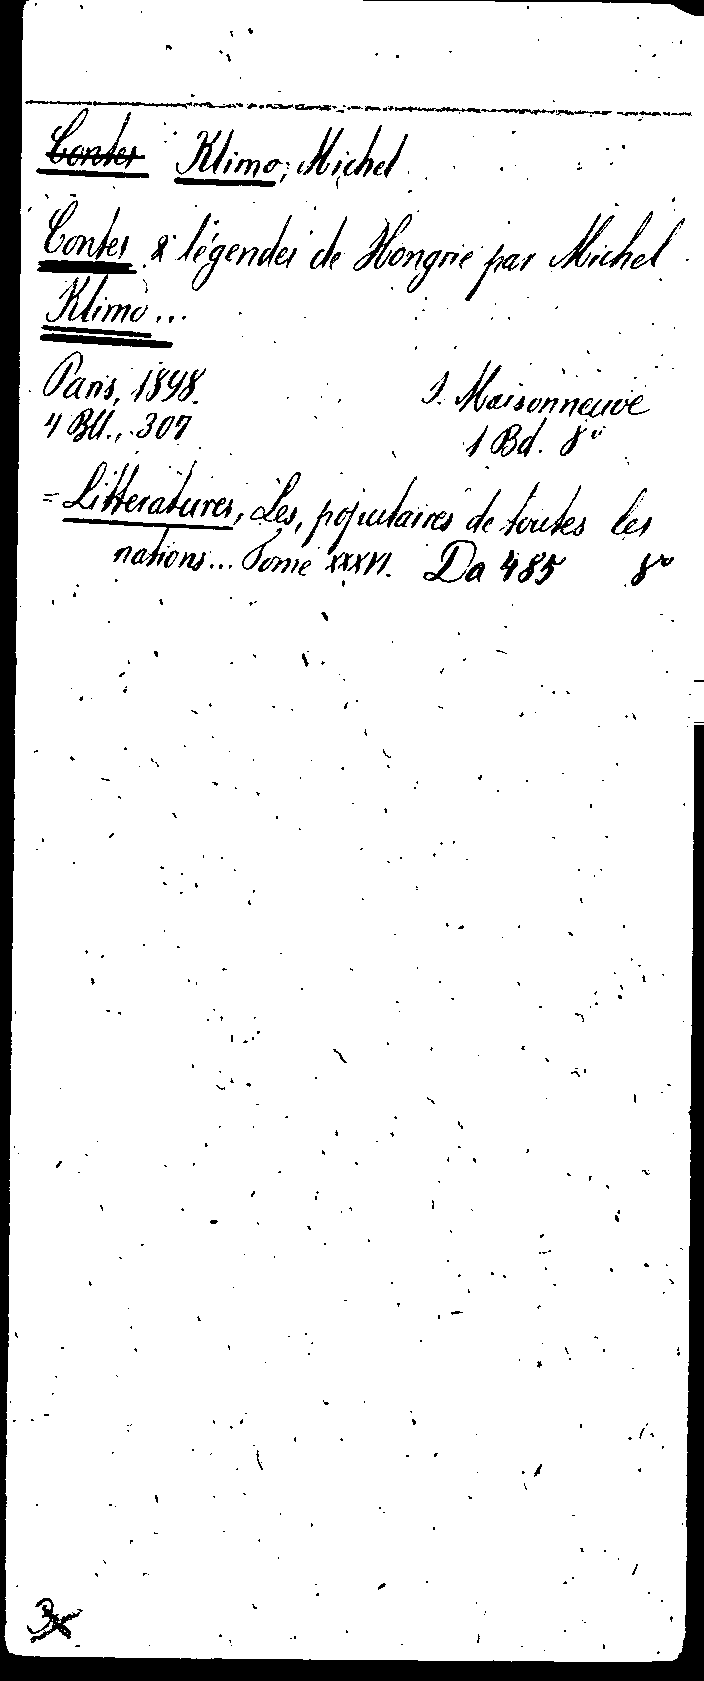 Contes Klimo, Michel
Contes & légendes de Hongrie par Michel
Klimo...
Paris, 1898. J. Maisonneuve
4 Bll., 307 1 Bd. 8°
= Litteratures, Les, populaires de toutes les
nations... Tome XXXVI. Da 485 8°
3x